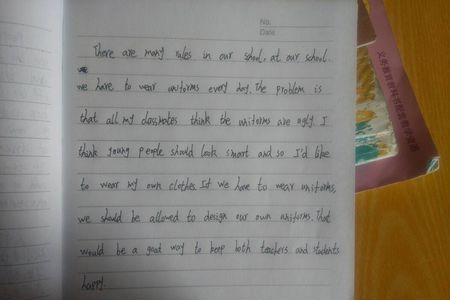 No.
Date
There are many rules in our school, at our school.
we have to wear uniforms every day. The problem is
that all my classmates think the uniforms are ugly. I
think young people should look smart and so I'd like
to wear my own clothes. If we have to wear uniforms,
we should be allowed to design our own uniforms. That
would be a good way to keep both teachers and students
happy.
义务教育教科书配套教学资源